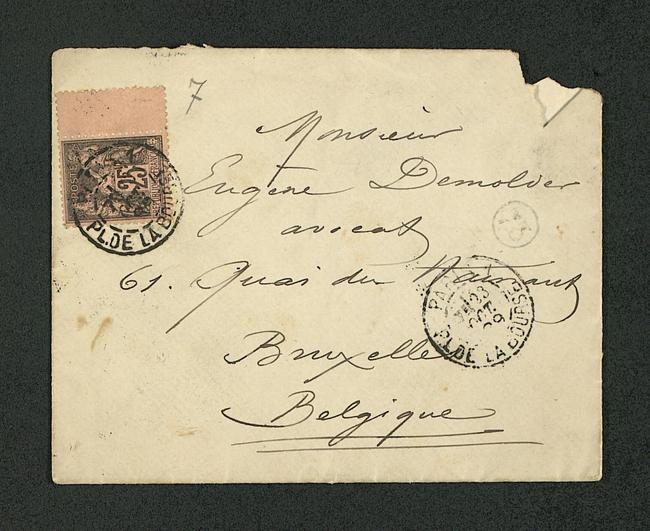 7
Monsieur
Eugène Demolder
avocat
61. Quai du
Bruxelles
Belgique
25
PL. DE LA BOURSE
PL. DE LA BOURSE
23
OCT
89